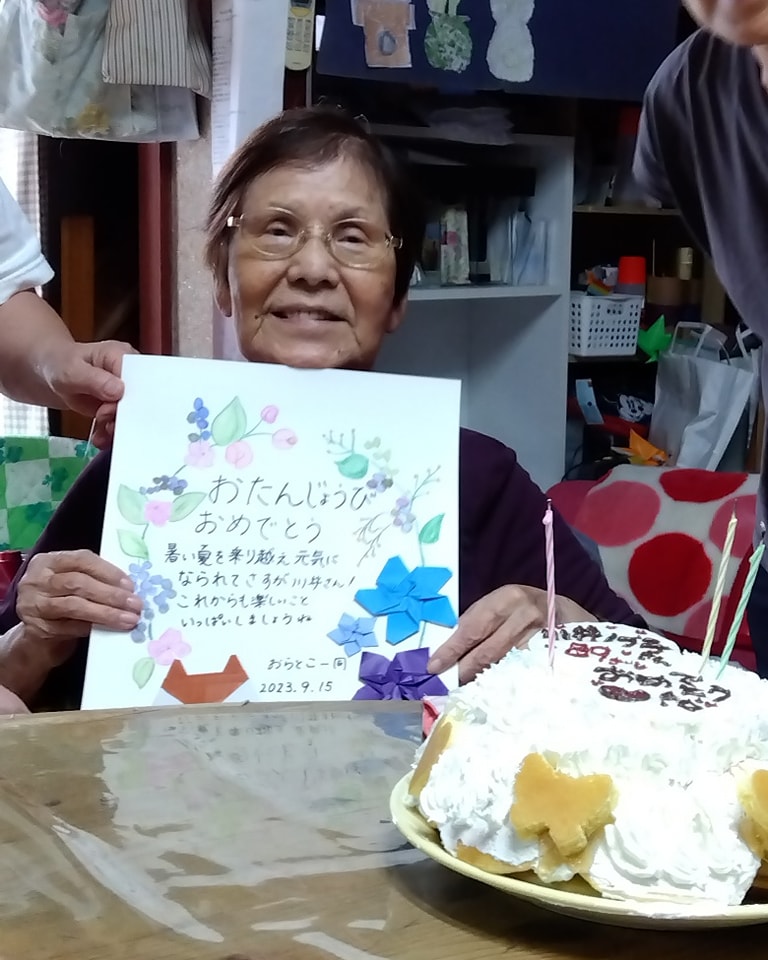 おたんじょうび
おめでとう
暑い夏を乗り越え元気に
なられてさすが川井さん!
これからも楽しいこと
いっぱいしましょうね
おらとこ一同
2023.9.15
89
おめでとう